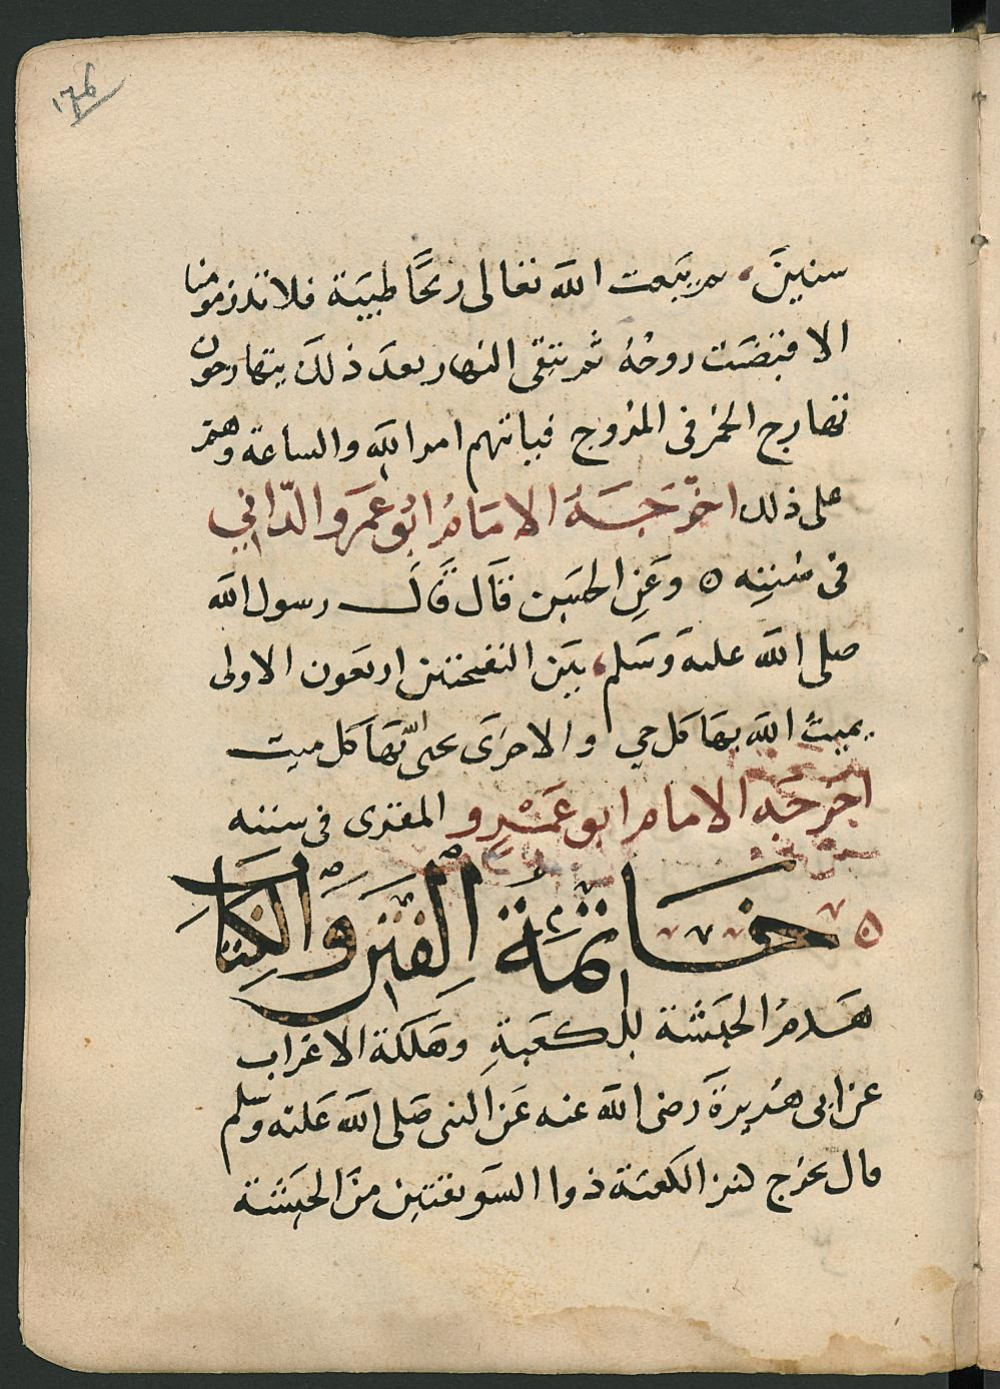 ١٧٦
سنين، ثم يبعث الله تعالى ريحا طيبة فلا تذر مومنا
الا قبضت روحه ثم تبقى النهار بعد ذلك يتهارجون
تهارج الحمر فى المروج فياتيهم امر الله والساعة وهم
على ذلك اخرجه الامام ابو عمرو الداني
فى سننه ه وعن الحسين قال قال رسول الله
صلى الله عليه وسلم، بين النفختين اربعون الاولى
يميت الله بها كل حي والاخرى يحى الله بها كل ميت
اخرجه الامام ابو عمرو المقرى فى سننه
ه خاتمة الفتن والكتاب
هدم الحبشة للكعبة وهلكة الاعراب
عن ابى هريرة رضى الله عنه عن النبى صلى الله عليه وسلم
قال يخرج لهدم الكعبة ذوا السويقتين من الحبشة